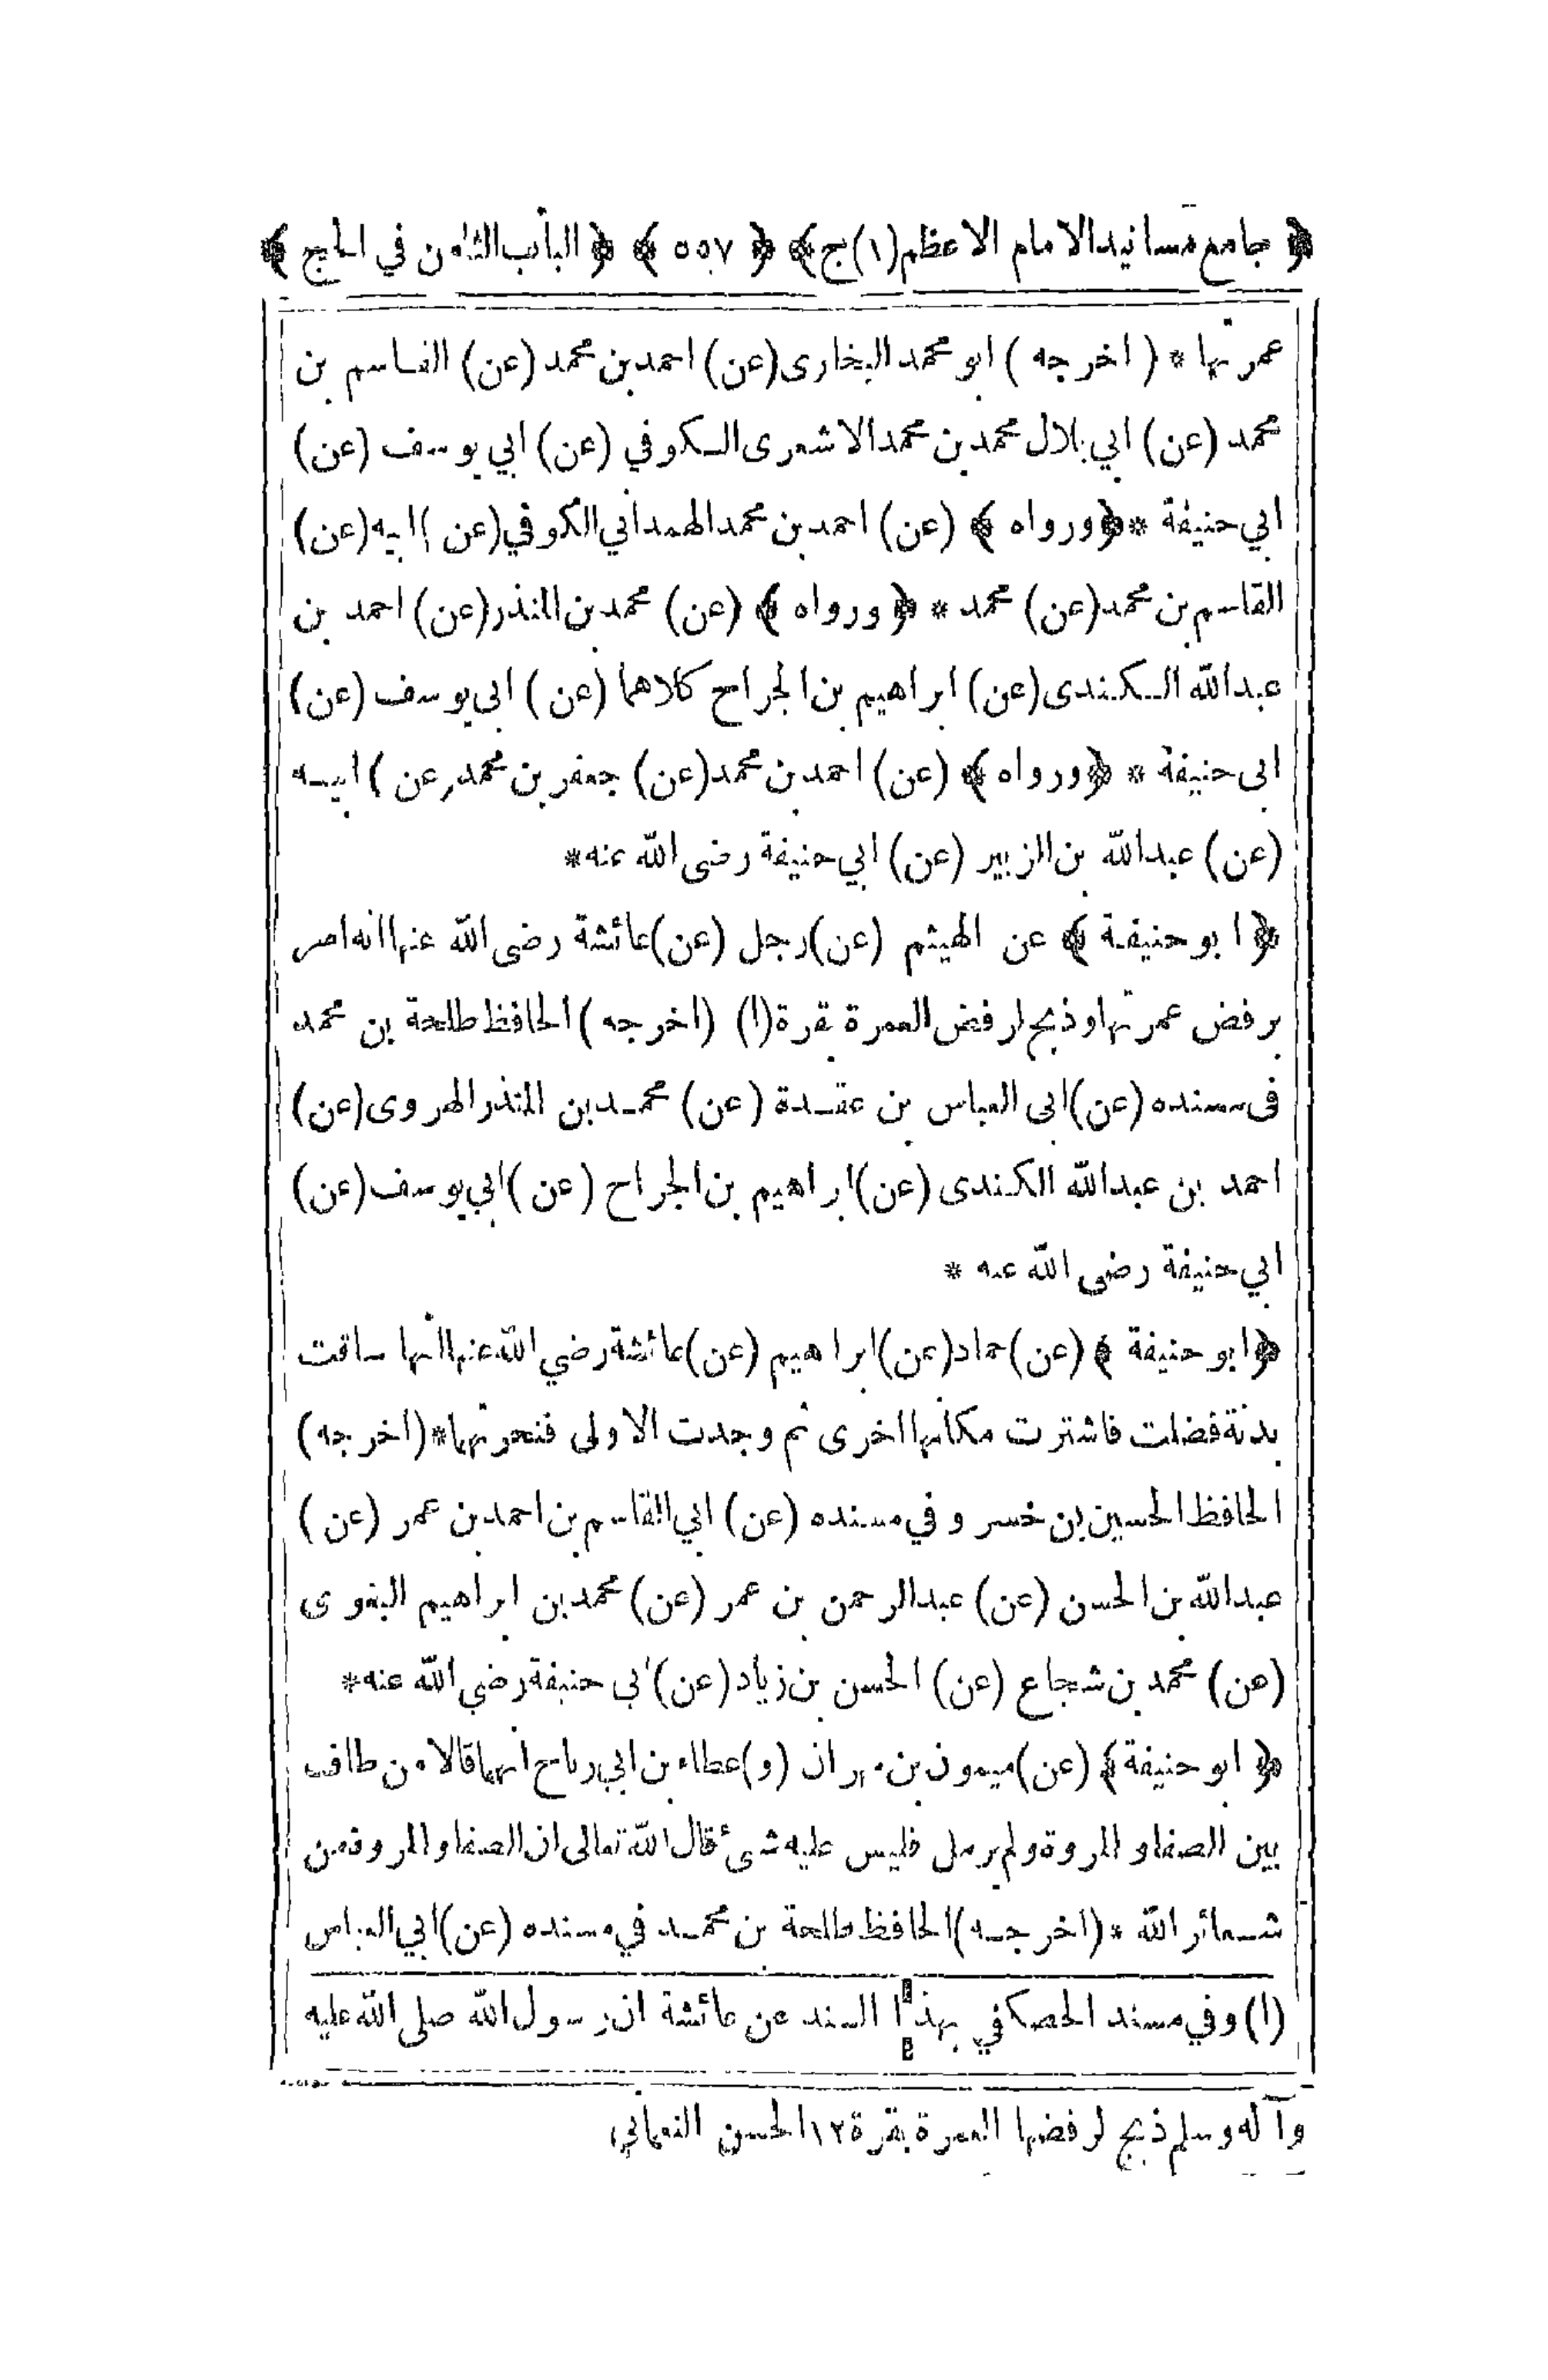 ﴿ جامع مسانيد الامام الاعظم (١) ج ﴾ ﴿ ٥٥٧ ﴾ ﴿ الباب الثامن في الحج ﴾
عمرتها * ( اخرجه ) ابو محمد البخارى (عن) احمد بن محمد (عن) القاسم بن
محمد (عن) ابي بلال محمد بن محمد الاشعرى الكوفي (عن) ابي يوسف (عن)
ابي حنيفة * ﴿ ورواه ﴾ (عن) احمد بن محمد الهمداني الكوفي (عن) ابيه (عن)
القاسم بن محمد (عن) محمد * ﴿ ورواه ﴾ (عن) محمد بن المنذر (عن) احمد بن
عبد الله الكندى (عن) ابراهيم بن الجراح كلاهما (عن) ابى يوسف (عن)
ابى حنيفة * ﴿ ورواه ﴾ (عن) احمد بن محمد (عن) جعفر بن محمد (عن) ابيه
(عن) عبد الله بن الزبير (عن) ابي حنيفة رضى الله عنه *
﴿ ابو حنيفة ﴾ عن الهيثم (عن) رجل (عن) عائشة رضى الله عنها انه امر
برفض عمرتها وذبح لرفض العمرة بقرة (١) (اخرجه) الحافظ طلحة بن محمد
فى مسنده (عن) ابى العباس بن عقدة (عن) محمد بن المنذر الهروى (عن)
احمد بن عبد الله الكندى (عن) ابراهيم بن الجراح (عن) ابي يوسف (عن)
ابي حنيفة رضى الله عنه *
﴿ ابو حنيفة ﴾ (عن) حماد (عن) ابراهيم (عن) عائشة رضي الله عنها انها ساقت
بدنة فضلت فاشترت مكانها اخرى ثم وجدت الاولى فنحرتهما * (اخرجه)
الحافظ الحسين بن خسرو في مسنده (عن) ابي القاسم بن احمد بن عمر (عن)
عبد الله بن الحسن (عن) عبد الرحمن بن عمر (عن) محمد بن ابراهيم البغوى
(عن) محمد بن شجاع (عن) الحسن بن زياد (عن) ابي حنيفة رضي الله عنه *
﴿ ابو حنيفة ﴾ (عن) ميمون بن مهران (و) عطاء بن ابي رباح انهما قالا من طاف
بين الصفا و المروة ولم يرمل فليس عليه شئ قال الله تعالى ان الصفا والمروة من
شعائر الله * (اخرجه) الحافظ طلحة بن محمد في مسنده (عن) ابي العباس
(١) وفي مسند الحصكفي بهذا السند عن عائشة ان رسول الله صلى الله عليه
وآله وسلم ذبح لرفضها العمرة بقرة ١٢ الحسن النعماني